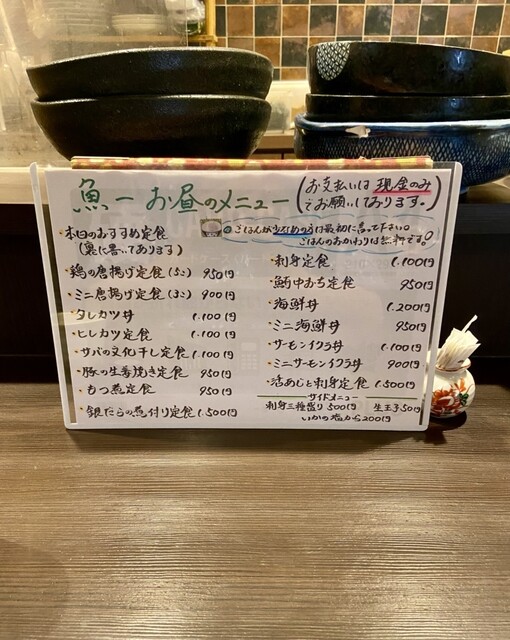 魚一 お昼のメニュー
(お支払いは現金のみ
でお願いしております。)
ごはん少なめの方は最初に言って下さい。
ごはんのおかわりは無料です。
・本日のおすすめ定食
(裏に書いてあります)
・鶏の唐揚げ定食(5こ) 950円
・ミニ唐揚げ定食(3こ) 900円
・タレカツ丼 1.100円
・ヒレカツ定食 1.100円
・サバの文化干し定食 1.100円
・豚の生姜焼き定食 950円
・もつ煮定食 950円
・銀だらの煮付け定食 1.500円
・刺身定食 1.100円
・鮪中おち定食 950円
・海鮮丼 1.200円
・ミニ海鮮丼 950円
・サーモンイクラ丼 1.100円
・ミニサーモンイクラ丼 900円
・活あじと刺身定食 1.500円
サイドメニュー
刺身三種盛り500円 生玉子50円
いかの塩から200円